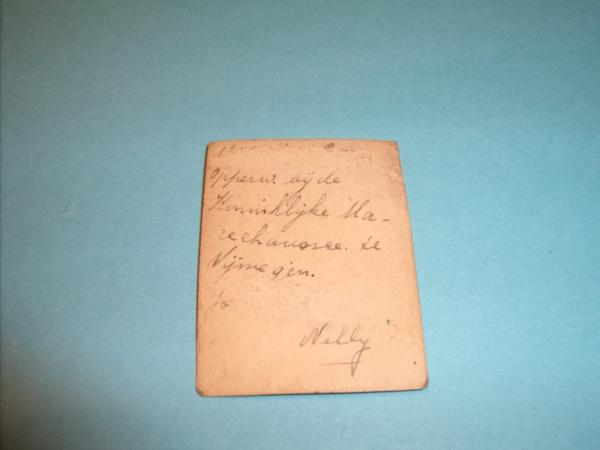 Opperw. bij de
Koninklijke Ma-
rechaussee. te
Nijmegen.
Nelly